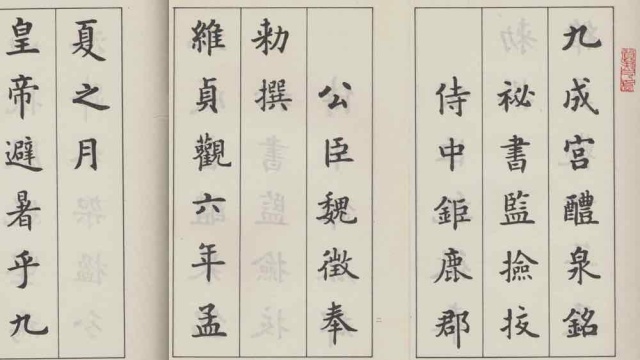 九成宮醴泉銘
祕書監撿挍
侍中鉅鹿郡
公臣魏徵奉
勑撰
維貞觀六年孟
夏之月
皇帝避暑乎九